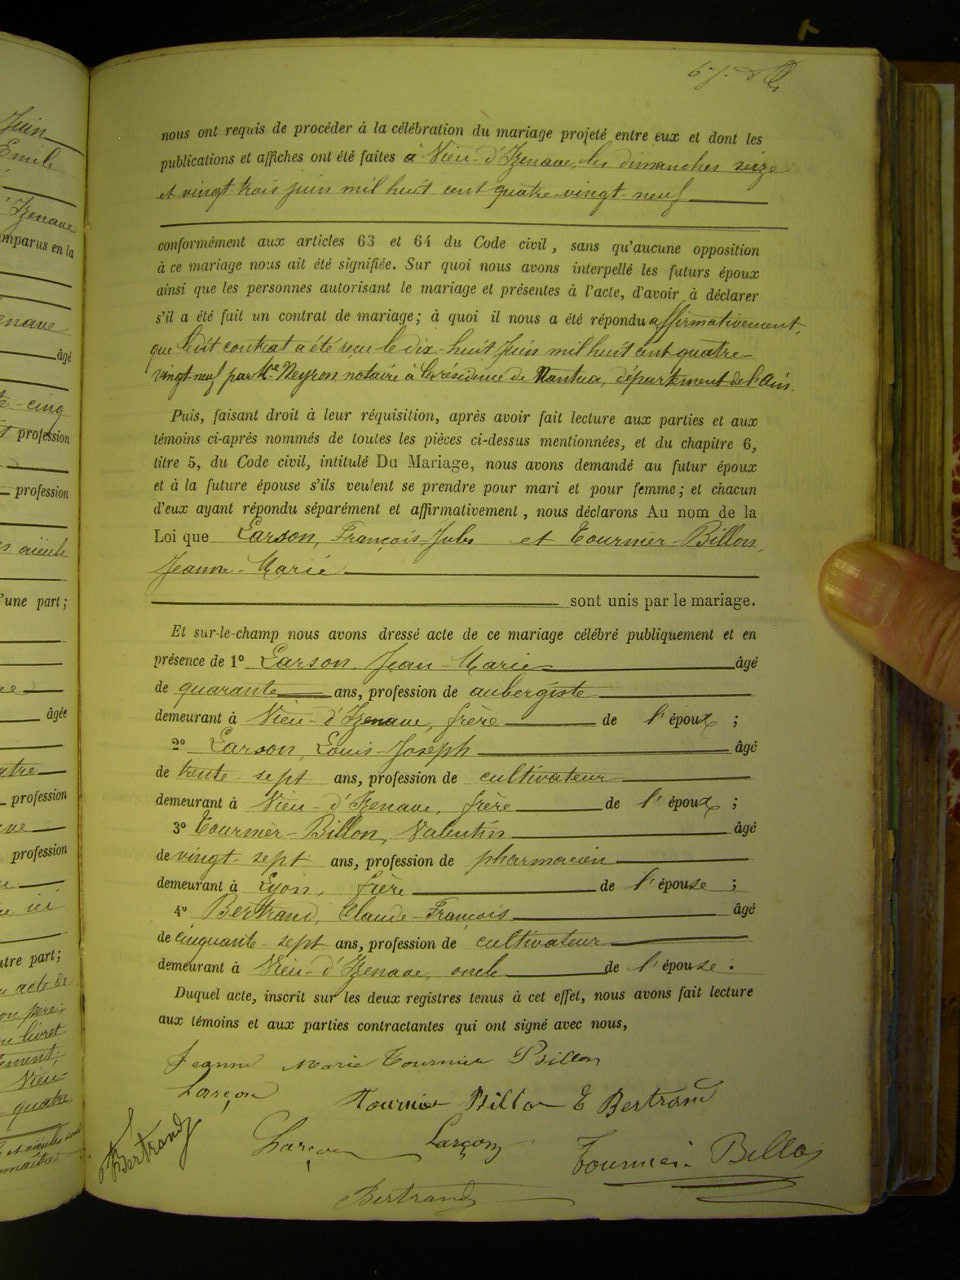 nous ont requis de procéder à la célébration du mariage projeté entre eux et dont les
publications et affiches ont été faites à Vieu-d'Izenave, les dimanches seize
et vingt trois juin mil huit cent quatre-vingt-neuf
conformément aux articles 63 et 64 du Code civil, sans qu'aucune opposition
à ce mariage nous ait été signifiée. Sur quoi nous avons interpellé les futurs époux
ainsi que les personnes autorisant le mariage et présentes à l'acte, d'avoir à déclarer
s'il a été fait un contrat de mariage; à quoi il nous a été répondu affirmativement,
que ledit contrat a été reçu le dix-huit juin mil huit cent quatre-
vingt-neuf par Me Neyron notaire à la résidence de Nantua, département de l'Ain.
Puis, faisant droit à leur réquisition, après avoir fait lecture aux parties et aux
témoins ci-après nommés de toutes les pièces ci-dessus mentionnées, et du chapitre 6,
titre 5, du Code civil, intitulé Du Mariage, nous avons demandé au futur époux
et à la future épouse s'ils veulent se prendre pour mari et pour femme; et chacun
d'eux ayant répondu séparément et affirmativement, nous déclarons Au nom de la
Loi que Larson, François-Jules et Tournier-Billon,
Jeanne-Marie
sont unis par le mariage.
Et sur-le-champ nous avons dressé acte de ce mariage célébré publiquement et en
présence de 1º Larson, Jean-Marie âgé
de quarante ans, profession de aubergiste
demeurant à Vieu-d'Izenave, frère de l'époux ;
2º Larson, Louis-Joseph âgé
de trente-sept ans, profession de cultivateur
demeurant à Vieu-d'Izenave, frère de l'époux ;
3º Tournier-Billon, Valentin âgé
de vingt-sept ans, profession de pharmacien
demeurant à Lyon, frère de l'épouse ;
4º Bertrand, Claude-François âgé
de cinquante-sept ans, profession de cultivateur
demeurant à Vieu-d'Izenave, oncle de l'épouse .
Duquel acte, inscrit sur les deux registres tenus à cet effet, nous avons fait lecture
aux témoins et aux parties contractantes qui ont signé avec nous,
Jeanne Marie Tournier Billon
Larçon Tournier Billon E Bertrand
Bertrand Larçon Larçon Tournier-Billon
Bertrand